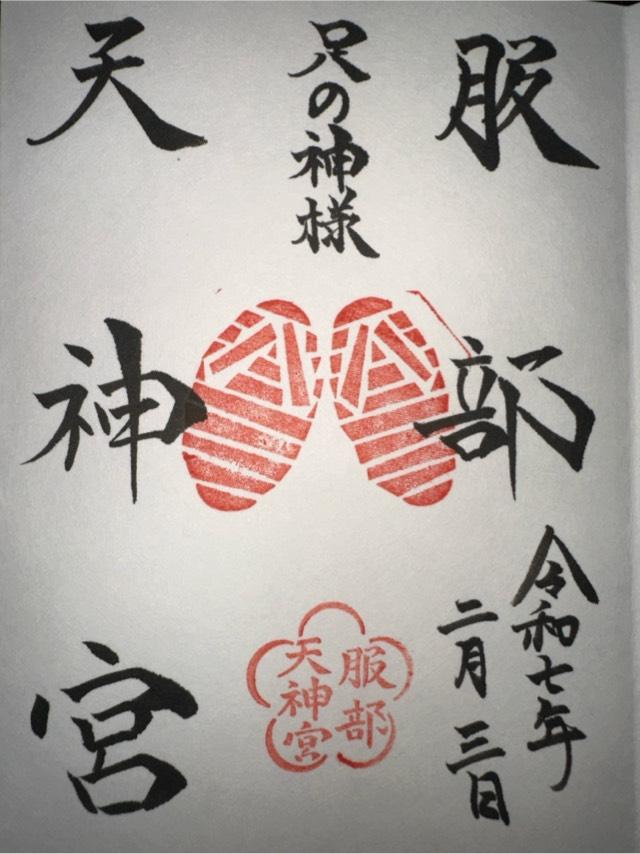 服部
足の神様
天神宮
令和七年
二月三日
服部
天神宮